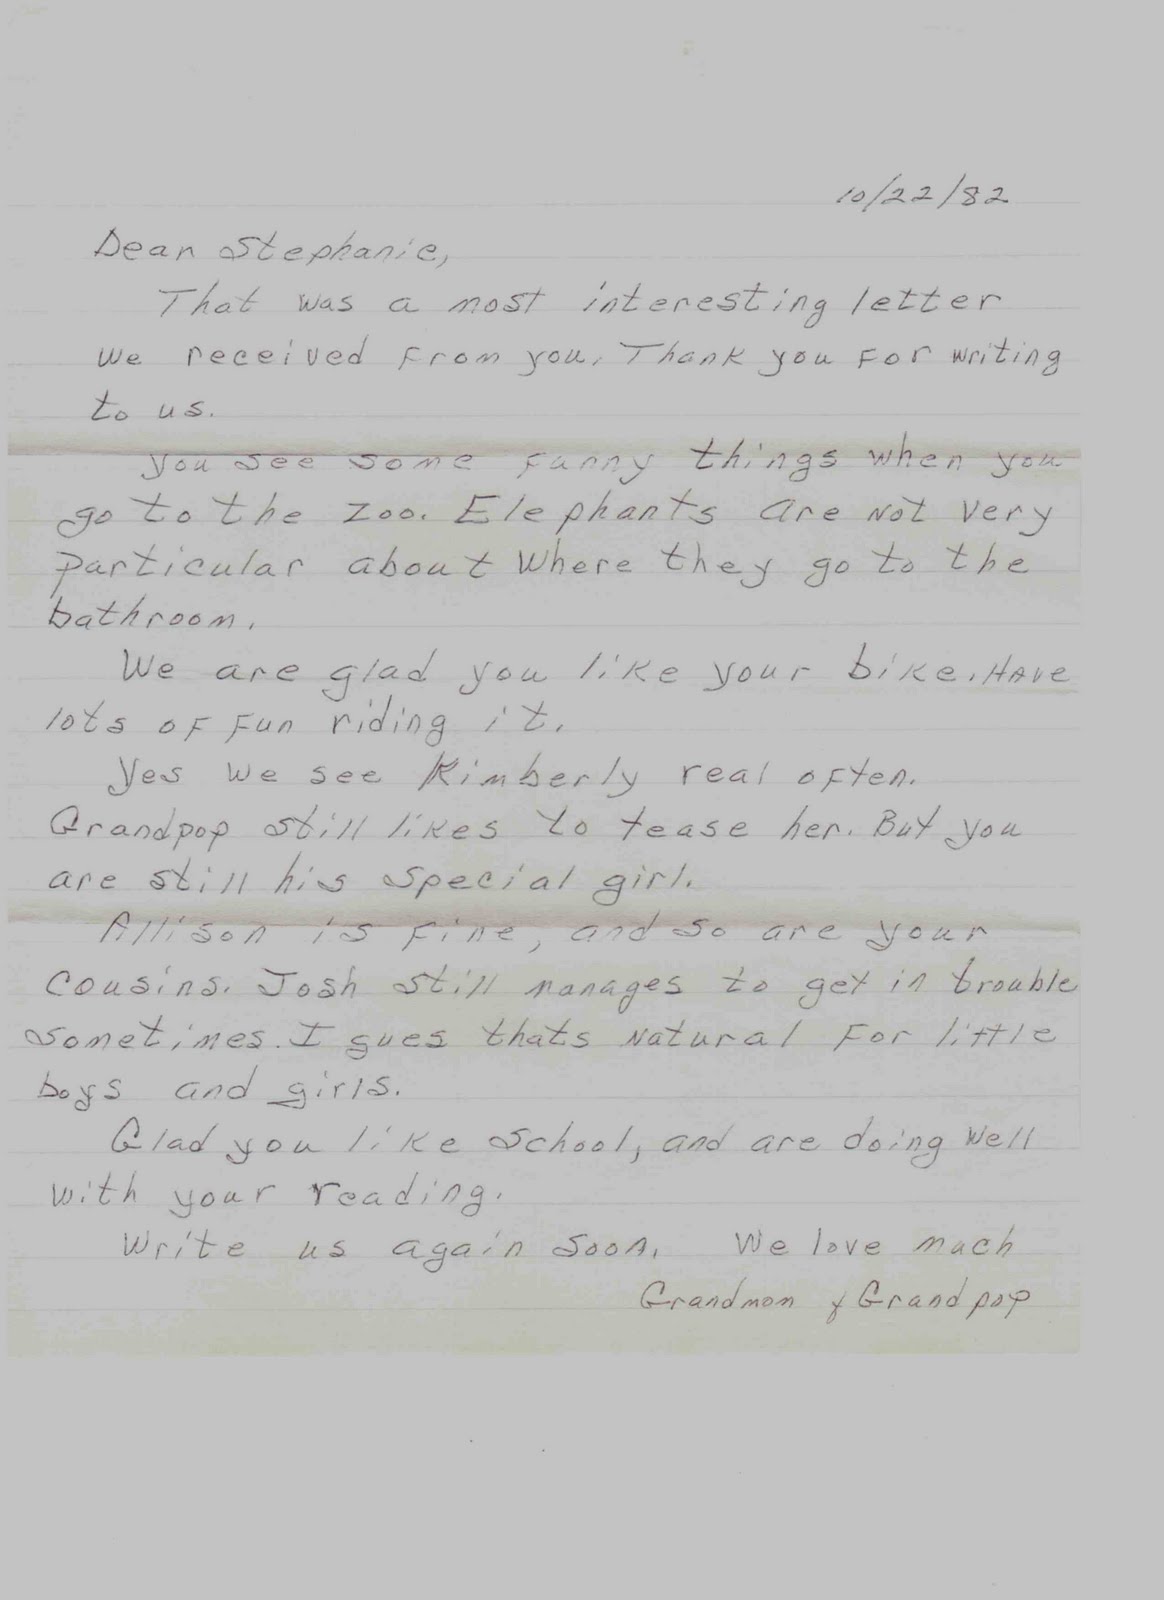 10/22/82
Dear Stephanie,
That was a most interesting letter
we received from you. Thank you for writing
to us.
You see some funny things when you
go to the zoo. Elephants are not very
particular about where they go to the
bathroom.
We are glad you like your bike. Have
lots of fun riding it.
Yes we see Kimberly real often.
Grandpop still likes to tease her. But you
are still his special girl.
Allison is fine, and so are your
cousins. Josh still manages to get in trouble
sometimes. I gues thats natural for little
boys and girls.
Glad you like school, and are doing well
with your reading.
Write us again soon. We love much
Grandmom & Grandpop